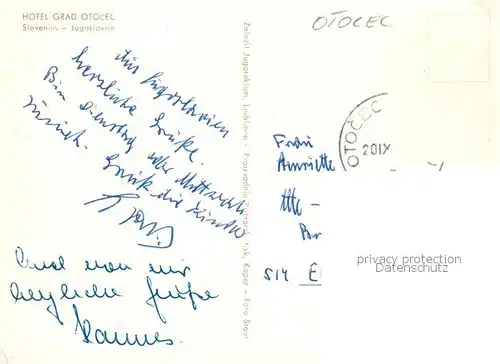 HOTEL GRAD OTOČEC
Slovenija - Jugoslavija
OTOČEC
Aus Jugoslavien
herzliche Grüße.
Bin Dienstag oder Mittwoch
zurück.
Grüß die Kinder
Und von mir
herzliche Grüße
Hannes.
Založil Jugoreklam, Ljubljana - Proizvodnja
tisk, Koper - Foto
OTOČEC
20IX
Frau
Henriette
514 E
privacy protection
Datenschutz